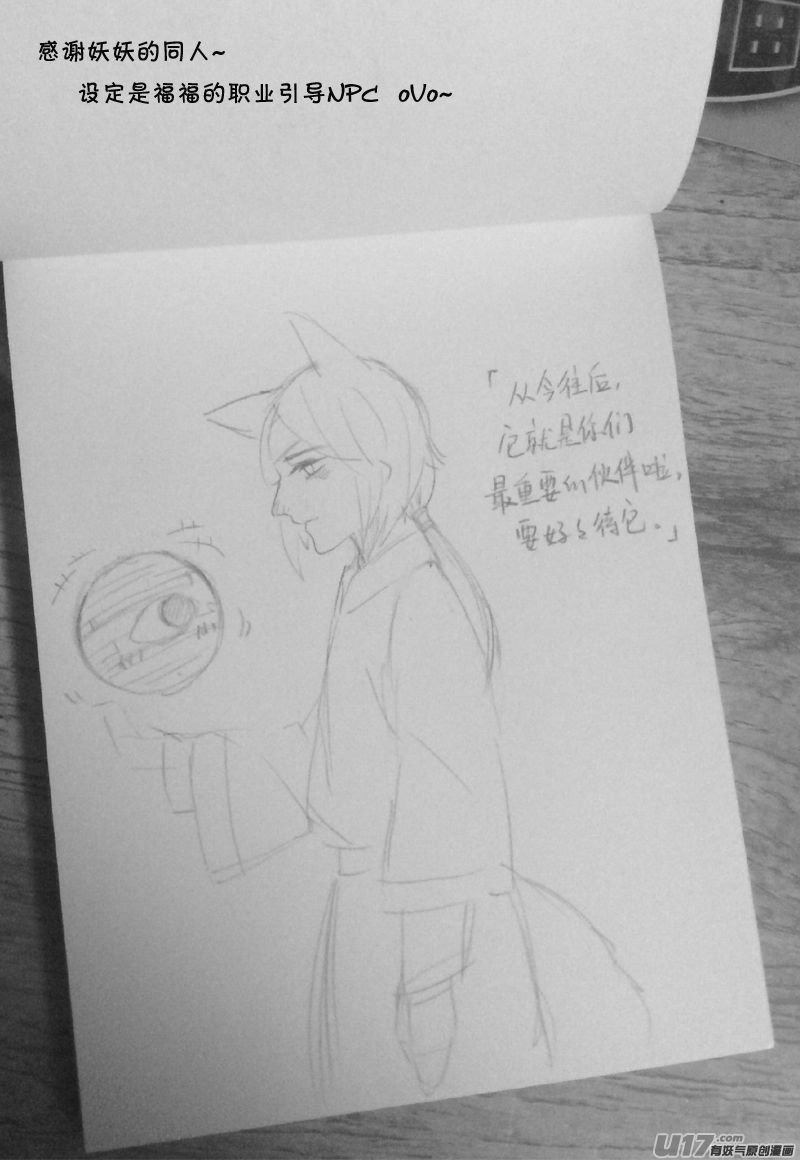 感谢妖妖的同人~
设定是福福的职业引导NPC oVo~
「从今往后,
它就是你们
最重要的伙伴啦,
要好々待它。」
U17.com
有妖气原创漫画